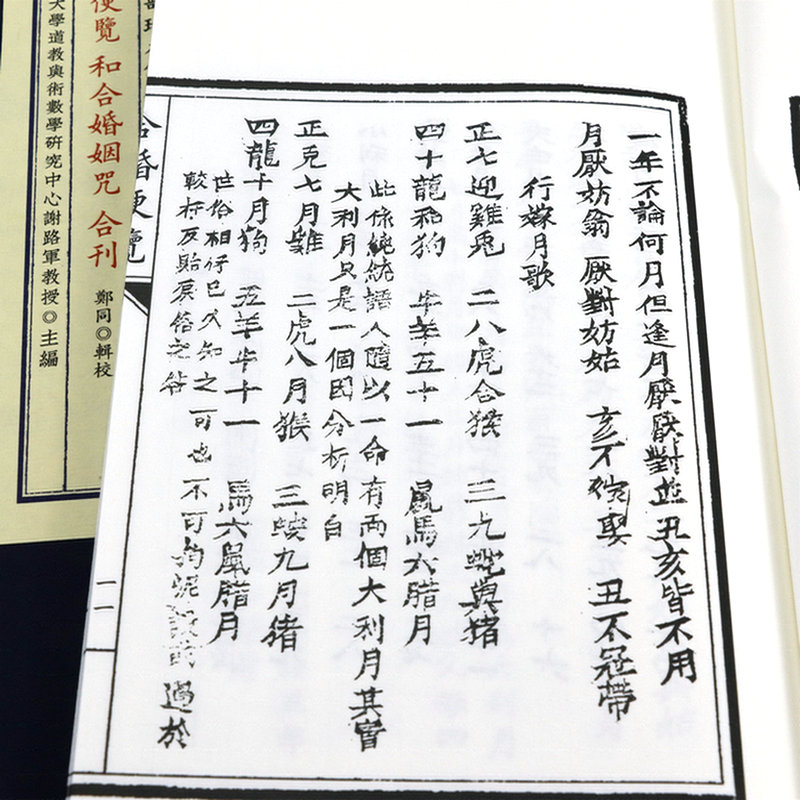 一年不論何月但逢月厭厭對並丑亥皆不用
月厭妨翁 厭對妨姑 亥不 娶 丑不冠帶
行嫁月歌
正七迎雞兔 二八虎合猴 三九蛇與猪
四十龍和狗 牛羊五十一 鼠馬六腊月
此係總統語人隨以一命有兩個大利月其實
大利月只是一個因分析明白
正兎七月雞 二虎八月猴 三蛇九月猪
四龍十月狗 五羊牛十一 馬六鼠腊月
世俗相仔已久知之可也不可拘泥 過於
較 反貽戾俗之咎
合婚便覽
一一
鄭同◎輯校
便覽 和合婚姻咒 合刊
大學道教與術數學研究中心謝路軍教授◎主編